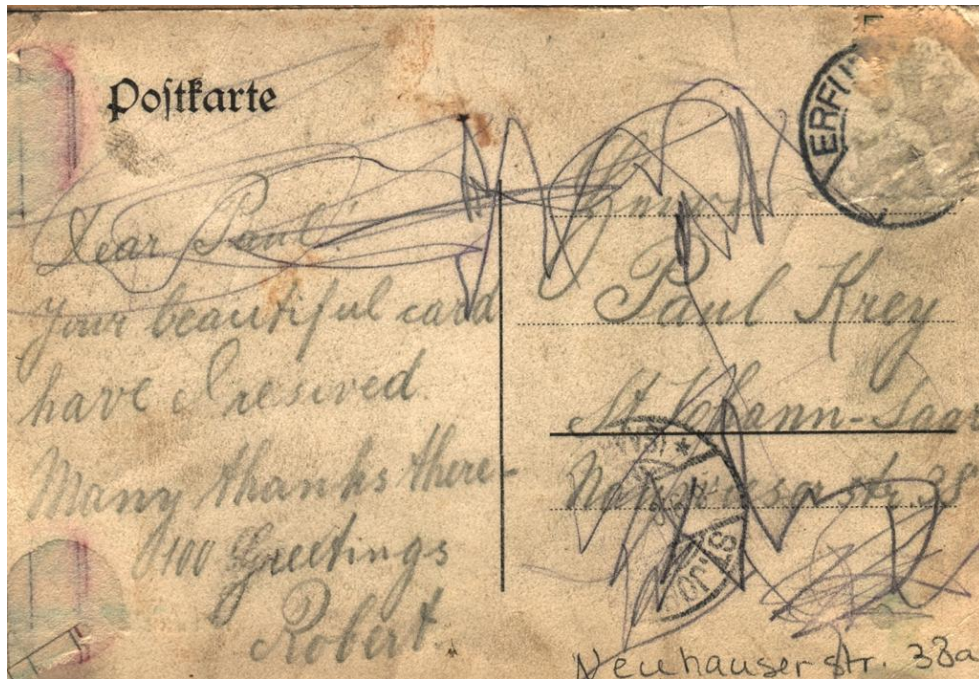 Postkarte
ERFU
Dear Paul!
Your beautiful card
have I resived.
Many thanks there-
100 Greetings
Robert.
Paul Krey
St. Johann-Saar
Nauwieserstr. 38
ST. JOH
Neuhauser str. 38a